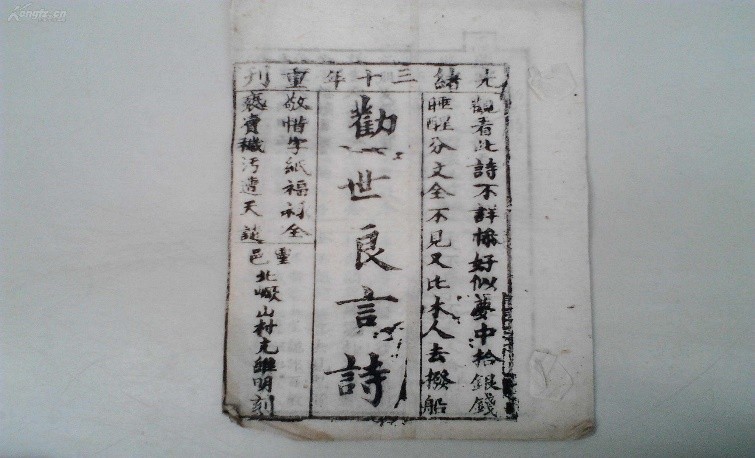 光緒三十年重刊
觀看此詩不詳 好似夢中拾銀錢
睡醒分文全不見又比木人去撥船
勸世良言詩
敬惜字紙福 全
褻 穢污遭天譴
靈邑北嶽山村 維明刻